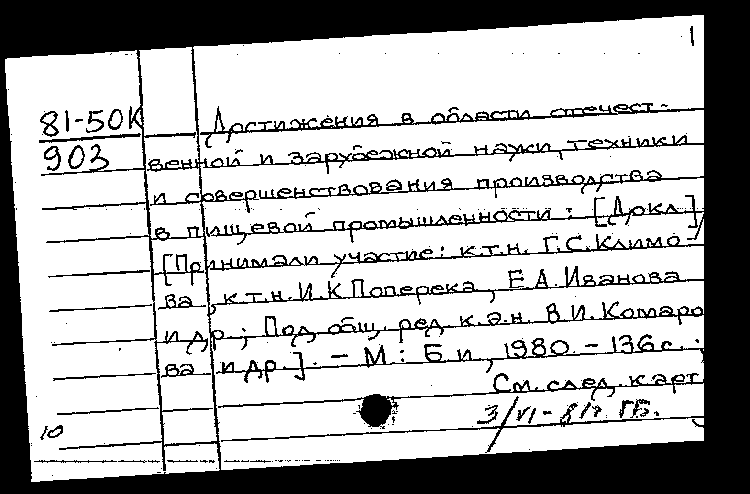 1
81-50К
903
Достижения в области отечест-
венной и зарубежной науки, техники
и совершенствования производства
в пищевой промышленности: [Докл.]
[Принимали участие: к.т.н. Г.С. Климо-
ва, к.т.н. И.К Поперека, Е.А. Иванова
и др.; Под общ. ред. к.э.н. В.И. Комаро
ва и др.]. - М.: Б.и., 1980. - 136 с.;
См. след. карт
3/VI-81г. ГБ.
10